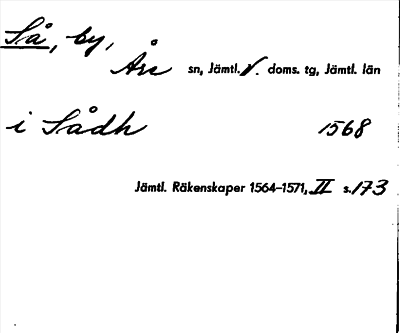 Så, by,
Åre sn, Jämtl. V. doms. tg, Jämtl. län
i Sådh 1568
Jämtl. Räkenskaper 1564-1571, II s. 173